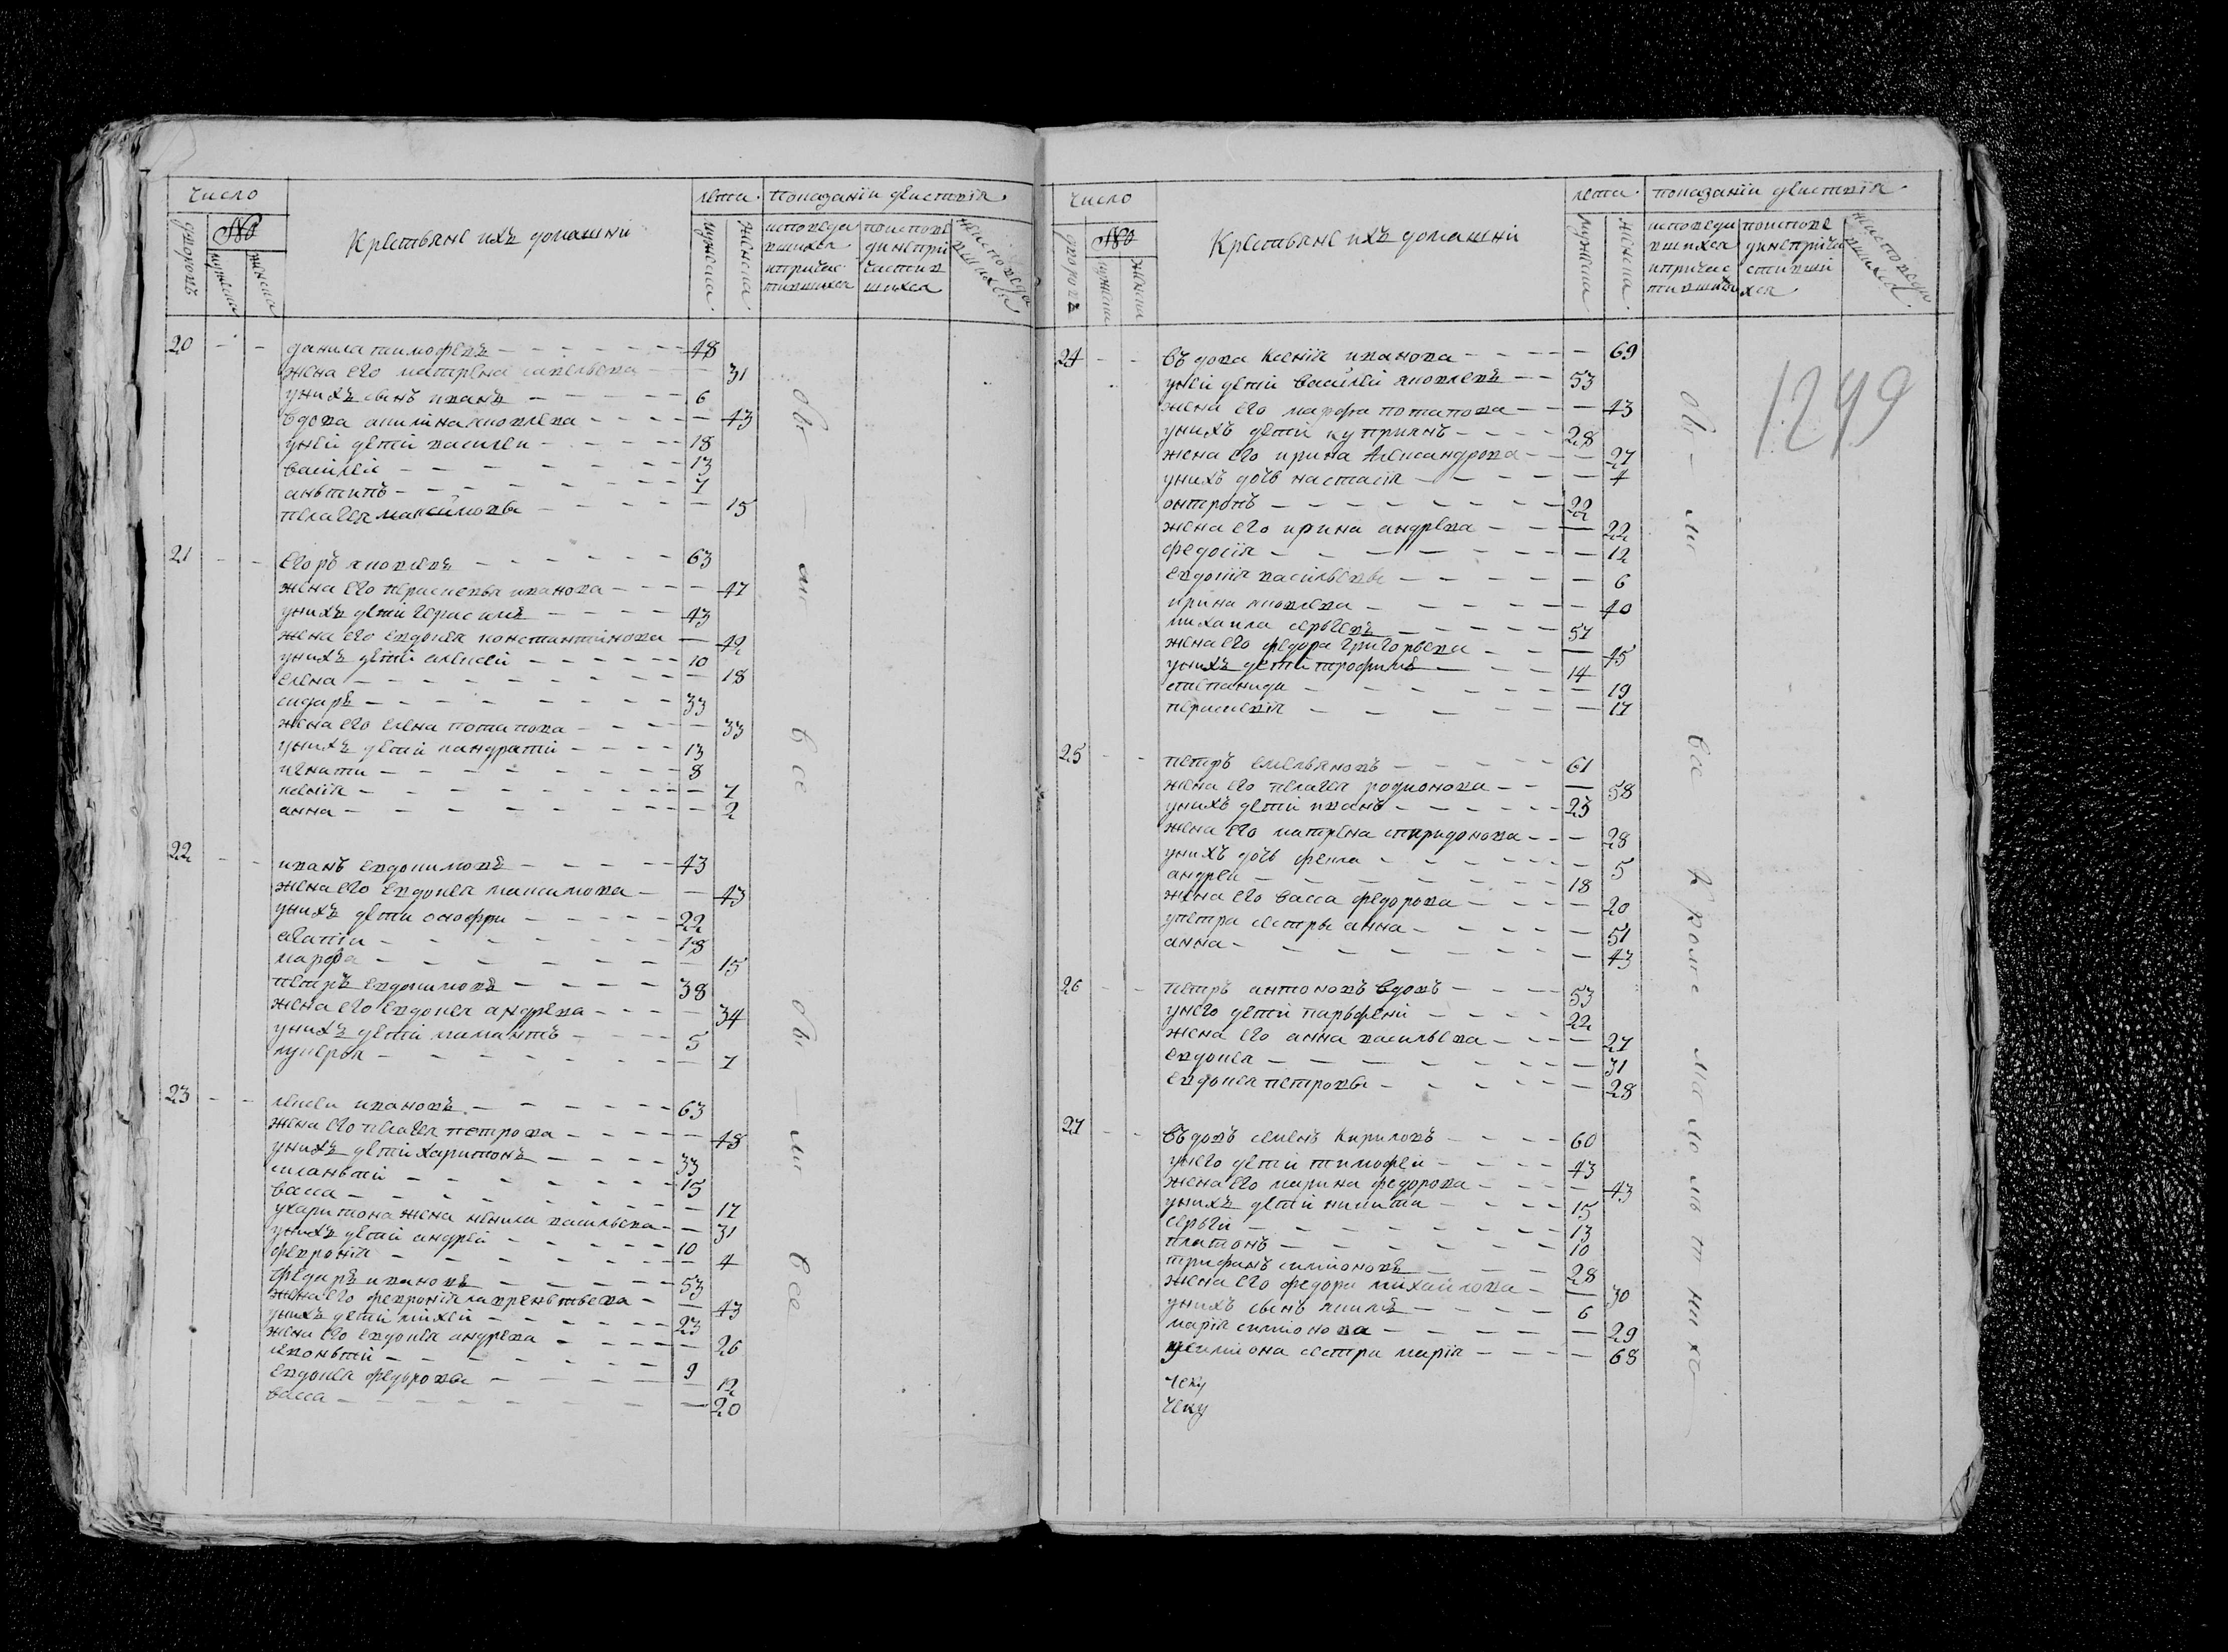 число
лета. показаніи действія
дворовъ
№
мужеска
женска
Крестьяне ихъ домашни
мужеска.
женска.
исповеда
вшихся
ипричас
тившихся
поисповѣ
данепри
частив
шихся
неисповеда
вшихся
20 - - данила тимофеевъ - - - - - - 48
жена его матрена савельева - - - 31
унихъ сынъ иванъ - - - - - 6
вдова акилина яковлева - - - - - 43
уней дети василеи - - - - - 18
василеи - - - - - - - 13
аньтипъ - - - - - - - 7
пелагея максимовы - - - - - 15
21 - - егоръ яковлевъ - - - - - - 63
жена его парасковья иванова - - - - 47
унихъ дети герасимъ - - - - - 43
жена его евдокея константинова - 42
унихъ дети алексеи - - - - - - 10
елена - - - - - - - - - - 18
сидаръ - - - - - - - - - 33
жена его елена потапова - - - - 33
унихъ дети кандратии - - - - 13
игнати - - - - - - - - 8
ксенія - - - - - - - - 7
анна - - - - - - - - - 2
22 - - иванъ евдокимовъ - - - - - 43
жена его евдокея максимова - - 43
унихъ дети онофри - - - - - 22
агапіи - - - - - - - 18
марфа - - - - - - - - 15
петръ евдокимовъ - - - - - 38
жена его евдокея андрева - - - - 34
унихъ дети мамантъ - - - - 5
лукерья - - - - - - - - 7
23 - - алексеи ивановъ - - - - - - 63
жена его пелагея петрова - - - - - 48
унихъ дети харитонъ - - - - - 33
силаньтии - - - - - - - 15
васса - - - - - - - - 17
ухаритона жена ненила васильева - - 31
унихъ дети андреи - - - - - 10
февронія - - - - - - - - 4
федаръ ивановъ - - - - - - 53
жена его февронія лавреньтьева - - 43
унихъ дети михеи - - - - - - 23
жена его евдокея андрева - - - - - 26
леоньтии - - - - - - - - 9
евдокея федоровы - - - - - 12
васса - - - - - - - - - 20
оы - ли все оы - ли все
число
лета. показаніи действія
дворовъ
№
мужеска
женска
Крестьяне ихъ домашни
мужеска
женска.
исповеди
вшихся
ипричас
тившихся
поисповѣ
данеприча
стивши
хся
неисповеда
вшихся.
1249
24 - - въдова Ксенія иванова - - - - - 69
уней дети василеи яковлевъ - - 53
жена его марфа потапова - - - - 43
унихъ дети куприянъ - - - - 28
жена его ирина Александрова - - - 27
унихъ дочь настасія - - - - - 4
онтропъ - - - - - - - - 22
жена его ирина андрева - - - - 22
федосія - - - - - - - - 12
евдокія васильевы - - - - - - 6
ирина яковлева - - - - - - - 40
михаила сергеевъ - - - - - - 57
жена его федора григорьева - - - - 45
унихъ дети трофимъ - - - - 14
степанида - - - - - - - 19
парасковія - - - - - - - 17
25 - - петръ емельяновъ - - - - - 61
жена его пелагея родионова - - - 58
унихъ дети иванъ - - - - - - 23
жена его матрена спиридонова - - - 28
унихъ дочь фекла - - - - - - 5
андреи - - - - - - - - 18
жена его васса федорова - - - - - 20
упетра сестры анна - - - - - - 51
анна - - - - - - - - 43
26 - - петръ антоновъ вдовъ - - - - 53
унего дети парьфении - - - - 22
жена его анна васильева - - - - 27
евдокея - - - - - - - - 31
евдокея петровы - - - - - - 28
27 - - въдовъ семенъ Кириловъ - - - - 60
унего дети тимофеи - - - - - 43
жена его марина федорова - - - - - 43
унихъ дети никита - - - - - 15
сергеи - - - - - - - - 13
платонъ - - - - - - - 10
трифанъ симионовъ - - - - 28
жена его федора михаилова - - 30
унихъ сынъ якимъ - - - - - 6
марія симионова - - - - - - 29
усимиона сестра марія - - - - 68
оы - ли все кроме малолѣтнихъ